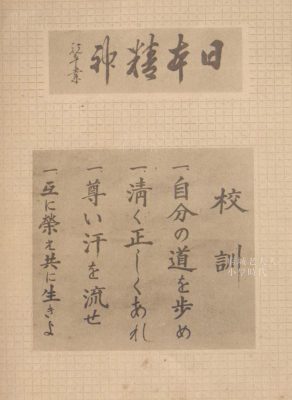 日本精神
校訓
一自分の道を歩め
一清く正しくあれ
一尊い汗を流せ
一互に榮え共に生きよ
小学時代